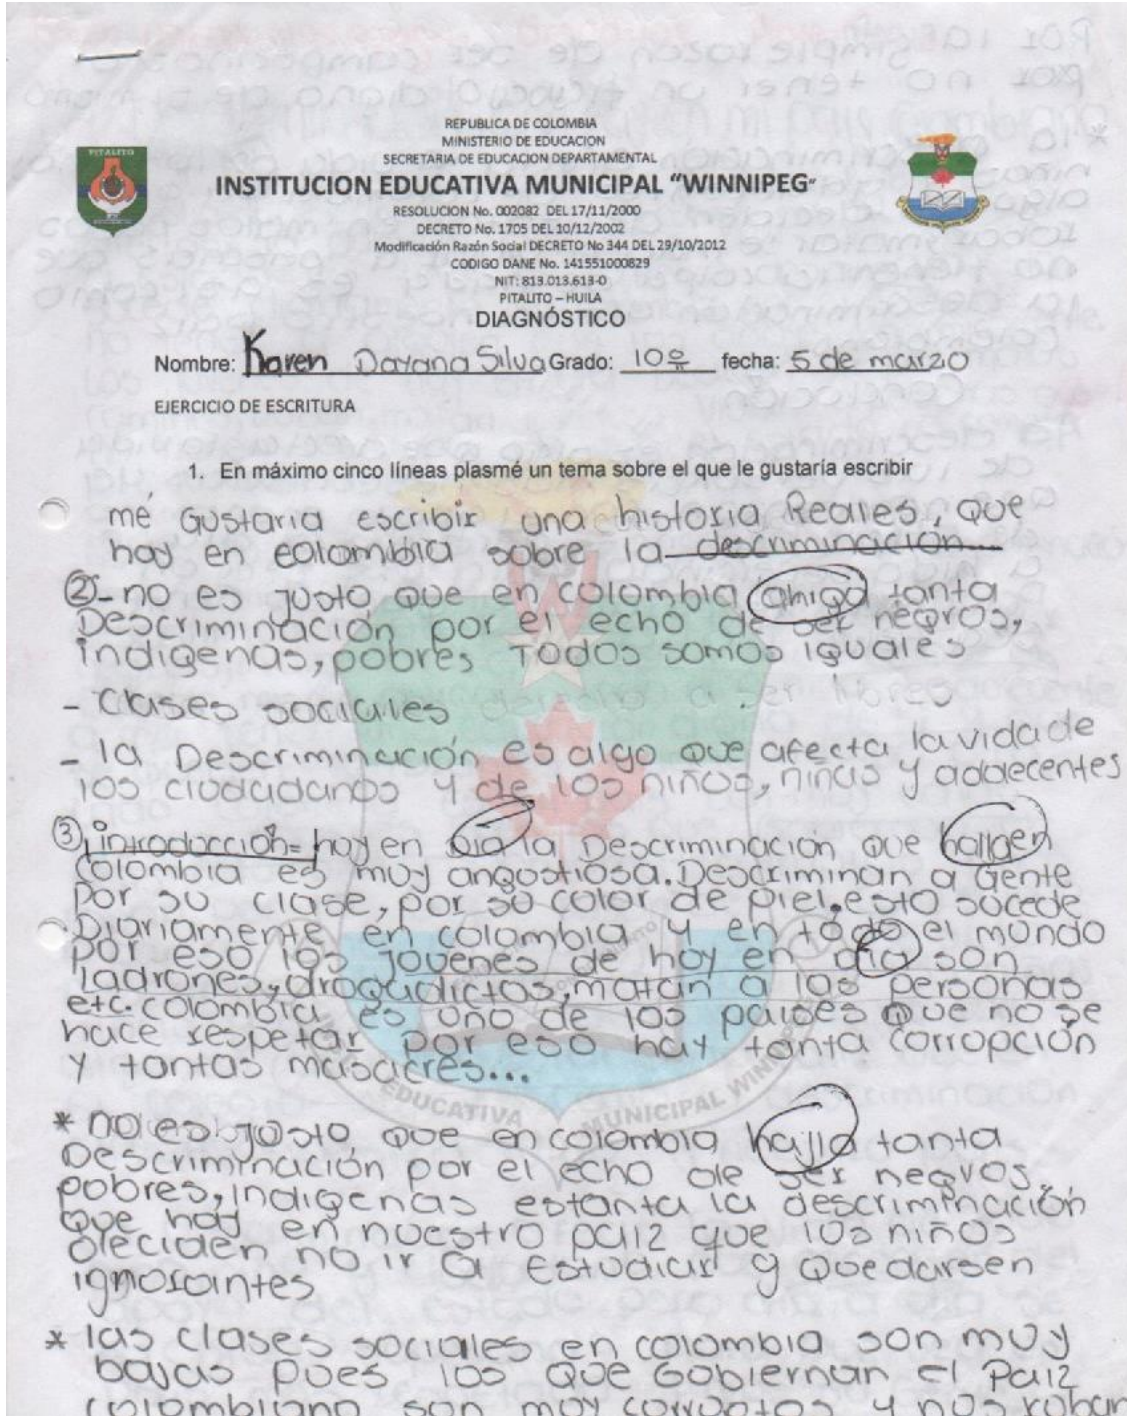 REPUBLICA DE COLOMBIA
MINISTERIO DE EDUCACION
SECRETARIA DE EDUCACION DEPARTAMENTAL
INSTITUCION EDUCATIVA MUNICIPAL “WINNIPEG”
RESOLUCION No. 002082 DEL 17/11/2000
DECRETO No. 1705 DEL 10/12/2002
Modificación Razón Social DECRETO No 344 DEL 29/10/2012
CODIGO DANE No. 141551000829
NIT: 813.013.613-0
PITALITO – HUILA
DIAGNÓSTICO
PITALITO
Nombre: Karen Dayana Silva Grado: 10º fecha: 5 de marzo
EJERCICIO DE ESCRITURA
1. En máximo cinco líneas plasmé un tema sobre el que le gustaría escribir
mé Gustaria escribir una historia Reales, que
hay en colombia sobre la descriminación...
②- no es justo que en colombia tanta
Descriminación por el echo de ser negros,
indigenas, pobres Todos somos iguales
- Clases sociales
- la Descriminación es algo que afecta la vida de
los ciudadanos y de los niños, niñas y adolecentes
③ introducción= hoy en dia la Descriminación que hallaen
Colombia es muy angustiosa. Descriminan a Gente
Por su clase, por su color de piel, esto sucede
Diariamente en colombia y en todo el mundo
por eso los jovenes de hoy en dia son
ladrones, drogadictos, matan a las personas
etc. colombia es uno de los paises que no se
hace respetar por eso hay tanta corropción
y tantas masacres...
* no es justo que en colombia hajla tanta
Descriminación por el echo de ser negros,
pobres, indigenas estanta la descriminación
que hay en nuestro paiz que los niños
deciden no ir a Estudiar y quedarsen
ignorantes
* las clases sociales en colombia son muy
bajas pues los que Gobiernan el Paiz
colombiano son muy corruptos y nos roban
EDUCATIVA MUNICIPAL